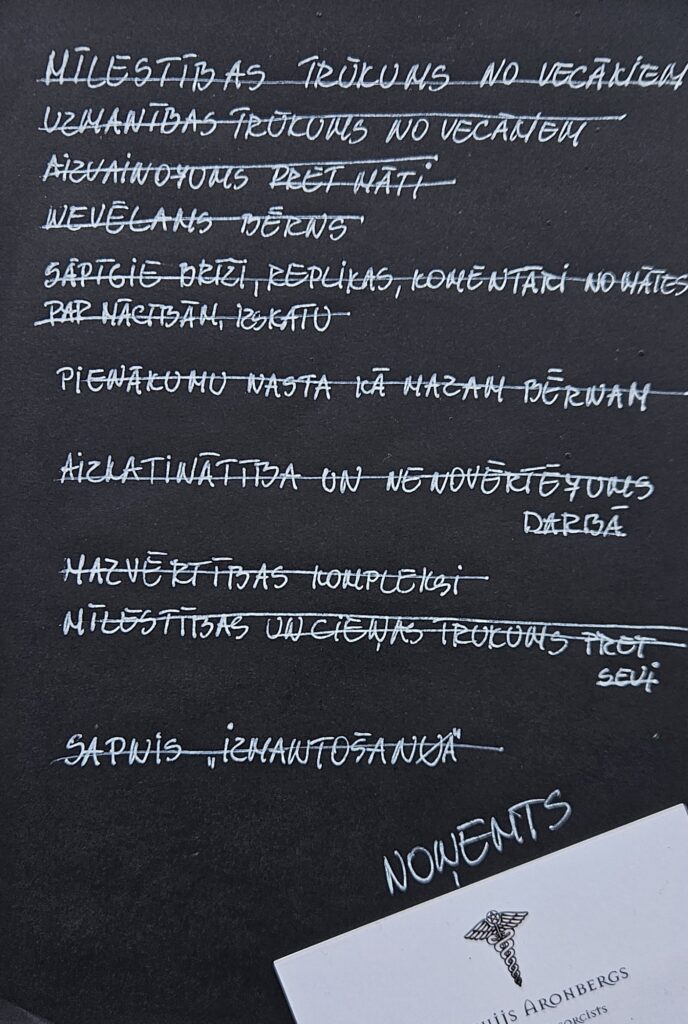 MĪLESTĪBAS TRŪKUMS NO VECĀKIEM
UZMANĪBAS TRŪKUMS NO VECĀKIEM
AIZVAINOJUMS PRET MĀTI
NEVĒLAMS BĒRNS
SĀPĪGIE BRĪŽI, REPLIKAS, KOMENTĀRI NO MĀTES
PAR MĀCĪBĀM, IZSKATU
PIENĀKUMU NASTA KĀ MAZAM BĒRNAM
AIZKAITINĀTĪBA UN NENOVĒRTĒJUMS
DARBĀ
MAZVĒRTĪBAS KOMPLEKSI
MĪLESTĪBAS UN CIEŅAS TRŪKUMS PRET
SEVI
SAPNIS „IZMANTOŠANĀ"
NOŅEMTS
ARONBERGS